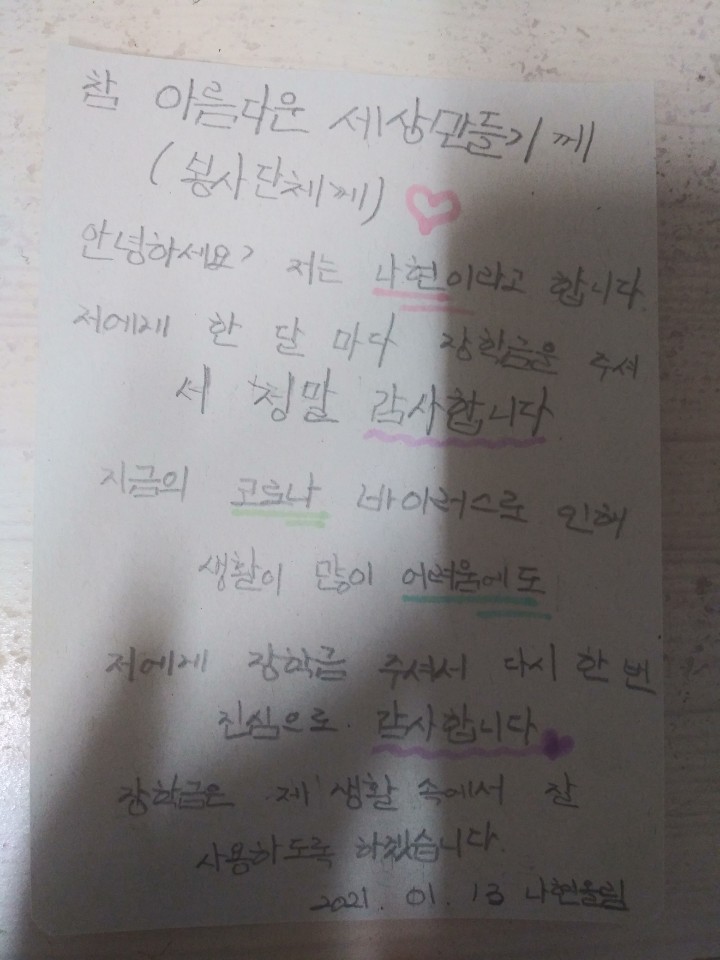 참 아름다운 세상만들기께
(봉사단체께)
안녕하세요? 저는 나현이라고 합니다.
저에게 한 달 마다 장학금을 주셔
서 정말 감사합니다
지금의 코로나 바이러스로 인해
생활이 많이 어려움에도
저에게 장학금 주셔서 다시 한 번
진심으로 감사합니다
장학금은 제 생활 속에서 잘
사용하도록 하겠습니다.
2021. 01. 13 나현올림